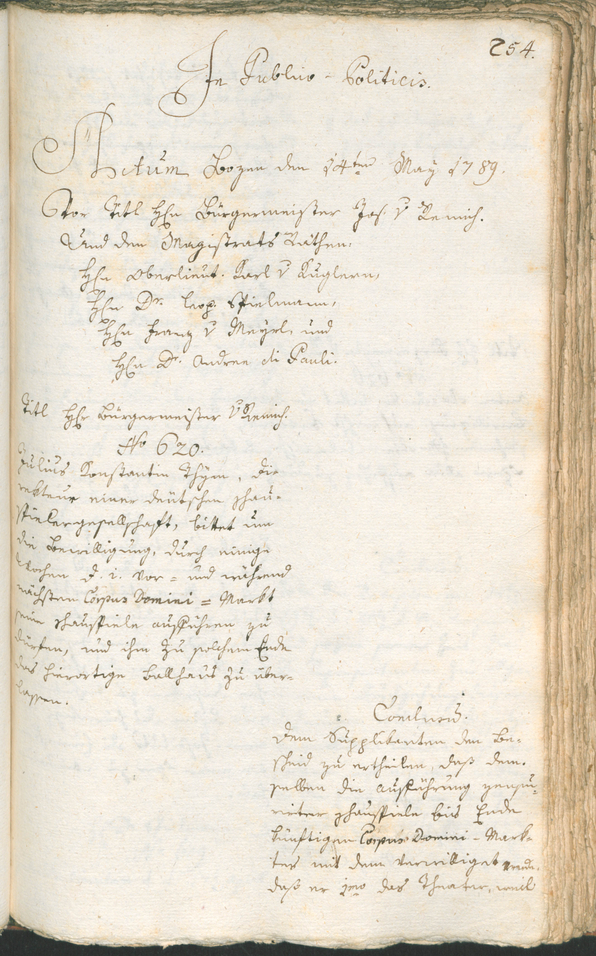 254.
In Publico-Politicis.
Actum Bozen den 14ten May 1789.
Vor Titl Hrn Bürgermeister Jos. v Remich.
Und den Magistrats Räthen,
Hrn Oberlieut. Karl v Kuglern,
Hrn Dr. Leop. Spielmann,
Hrn Franz v Meyrl, und
Hrn Dr. Andree di Pauli.
Titl Hr Bürgermeister v Remich.
No 620.
Julius Konstantin Thym, Di-
rekteur einer deutschen Schau-
spielergesellschaft, bittet um
die Bewilligung, durch einige
Wochen d. i. vor- und während
nächstem Corpus Domini-Markt
seine Schauspiele aufführen zu
dürfen, und ihm zu solchem Ende
das hierortige Ballhaus zu über-
lassen.
Conclusum.
Dem Supplikanten den Be-
scheid zu ertheilen, daß dem-
selben die Aufführung gesitt-
neter Schauspiele bis Ende
künftigen Corpus Domini-Mark-
tes mit dem verwilliget werde,
daß er 1mo das Theater, weil